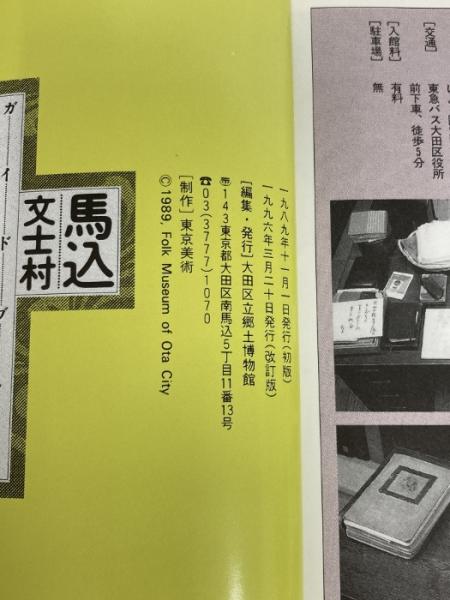 [交通]
東急バス大田区役所
前下車、徒歩5分
[入館料] 有料
[駐車場] 無
一九八九年十一月一日発行(初版)
一九九六年三月二十日発行(改訂版)
[編集・発行]大田区立郷土博物館
〠143東京都大田区南馬込5丁目11番13号
☎03(3777)1070
[制作]東京美術
©1989, Folk Museum of Ota City
馬込
文士村
ガイドブ